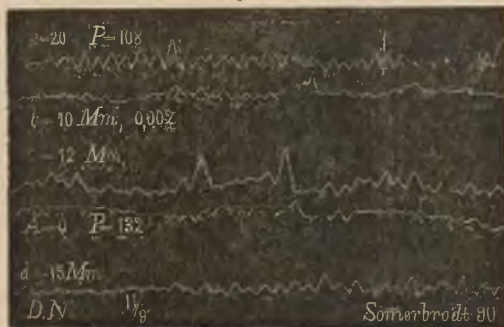 a=20 P=108
b=10 Mm, 0,002
c=12 Mm,
A=0 P=132
d=15 Mm
D.N 11/9 Sómerbrodt 90